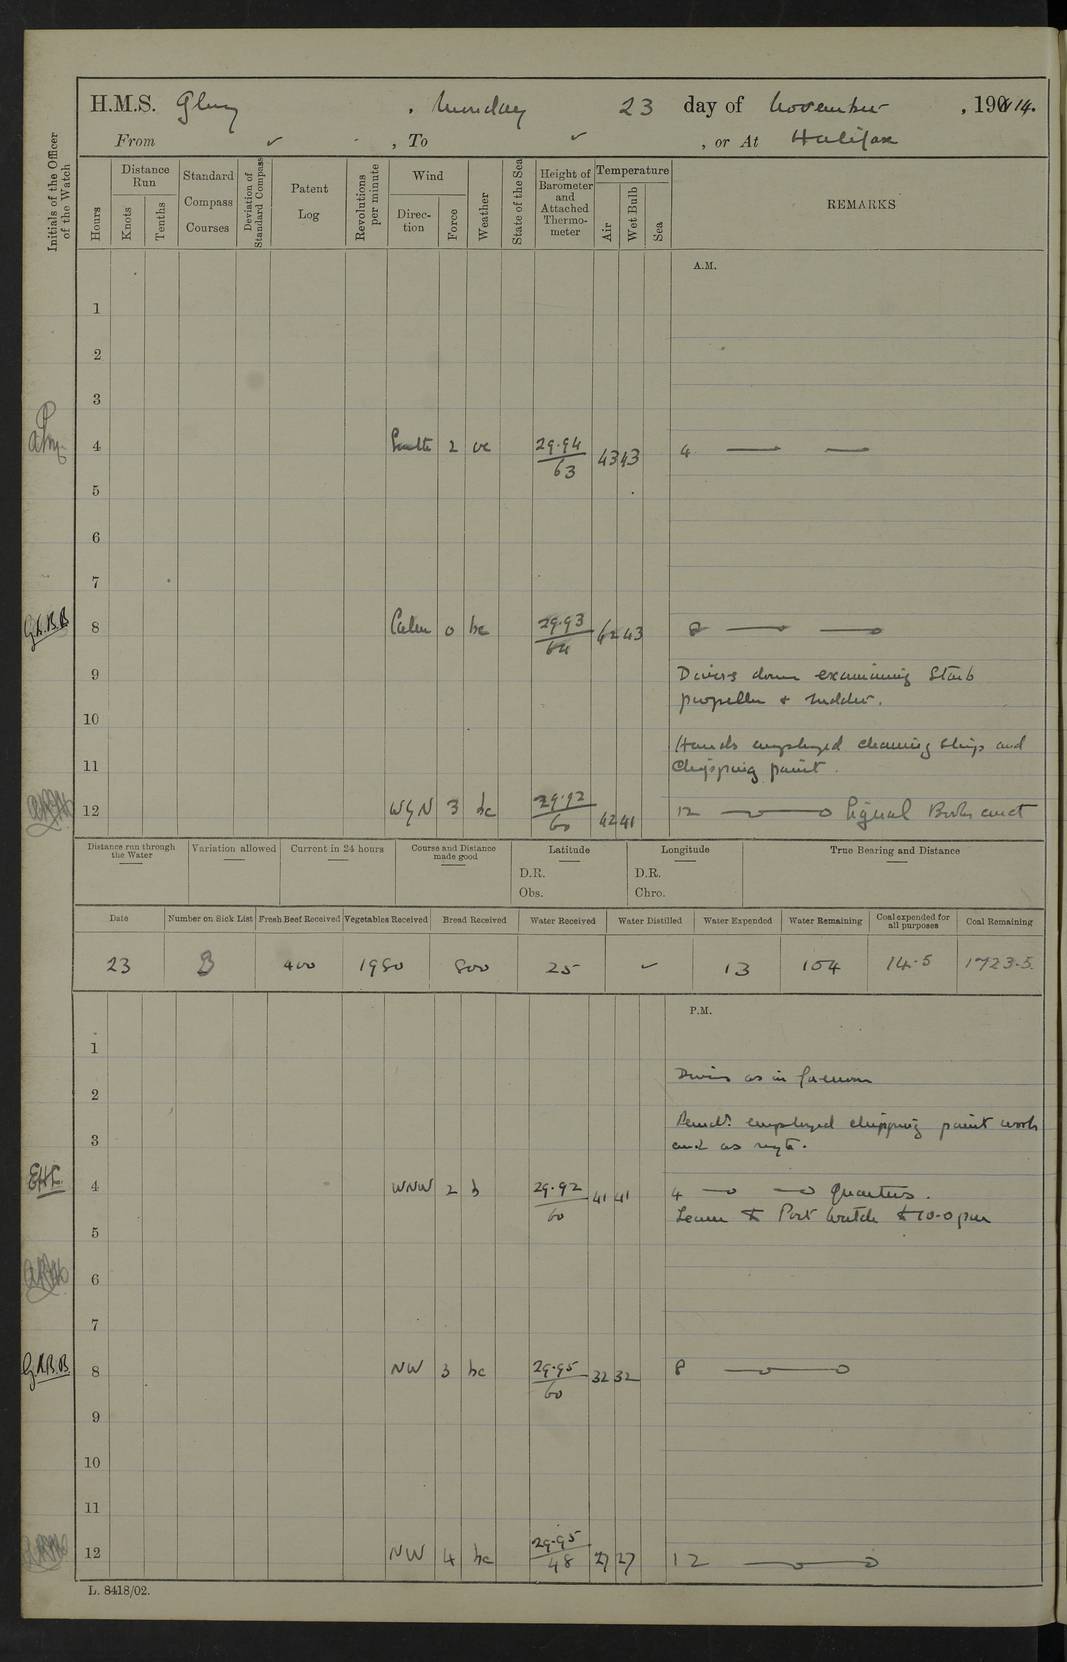 H.M.S. Glory, Monday 23 day of November, 1914.
From ✓, To ✓, or At Halifax
Initials of the Officer of the Watch
Hours
Distance Run
Knots
Tenths
Standard Compass Courses
Deviation of Standard Compass
Patent Log
Revolutions per minute
Wind
Direction
Force
Weather
State of the Sea
Height of Barometer and Attached Thermometer
Temperature
Air
Wet Bulb
Sea
REMARKS
A.M.
1
2
3
4 2 oc 29.94/63 43 43 4
5
6
7
G.A.B.B. 8 Calm 0 bc 29.93/64 42 43 8
9 Divers down examining Starb
propeller & rudder.
10
Hands employed cleaning ship and
11 Chipping paint.
12 WyN 3 bc 29.92/60 42 41 12 Signal Books
Distance run through the Water
Variation allowed
Current in 24 hours
Course and Distance made good
Latitude
D.R.
Obs.
Longitude
D.R.
Chro.
True Bearing and Distance
Date Number on Sick List Fresh Beef Received Vegetables Received Bread Received Water Received Water Distilled Water Expended Water Remaining Coal expended for all purposes Coal Remaining
23 3 400 1950 800 25 ✓ 13 154 14.5 1723.5
P.M.
1
Divers as in forenoon
2
Hands employed chipping paint work
3 and as reqte.
4 WNW 2 b 29.92/60 41 41 4 Quarters.
Leave to Port Watch to 10.0 pm
5
6
7
G.A.B.B. 8 NW 3 bc 29.95/60 32 32 8
9
10
11
12 NW 4 bc 29.95/48 27 27 12
L. 8418/02.